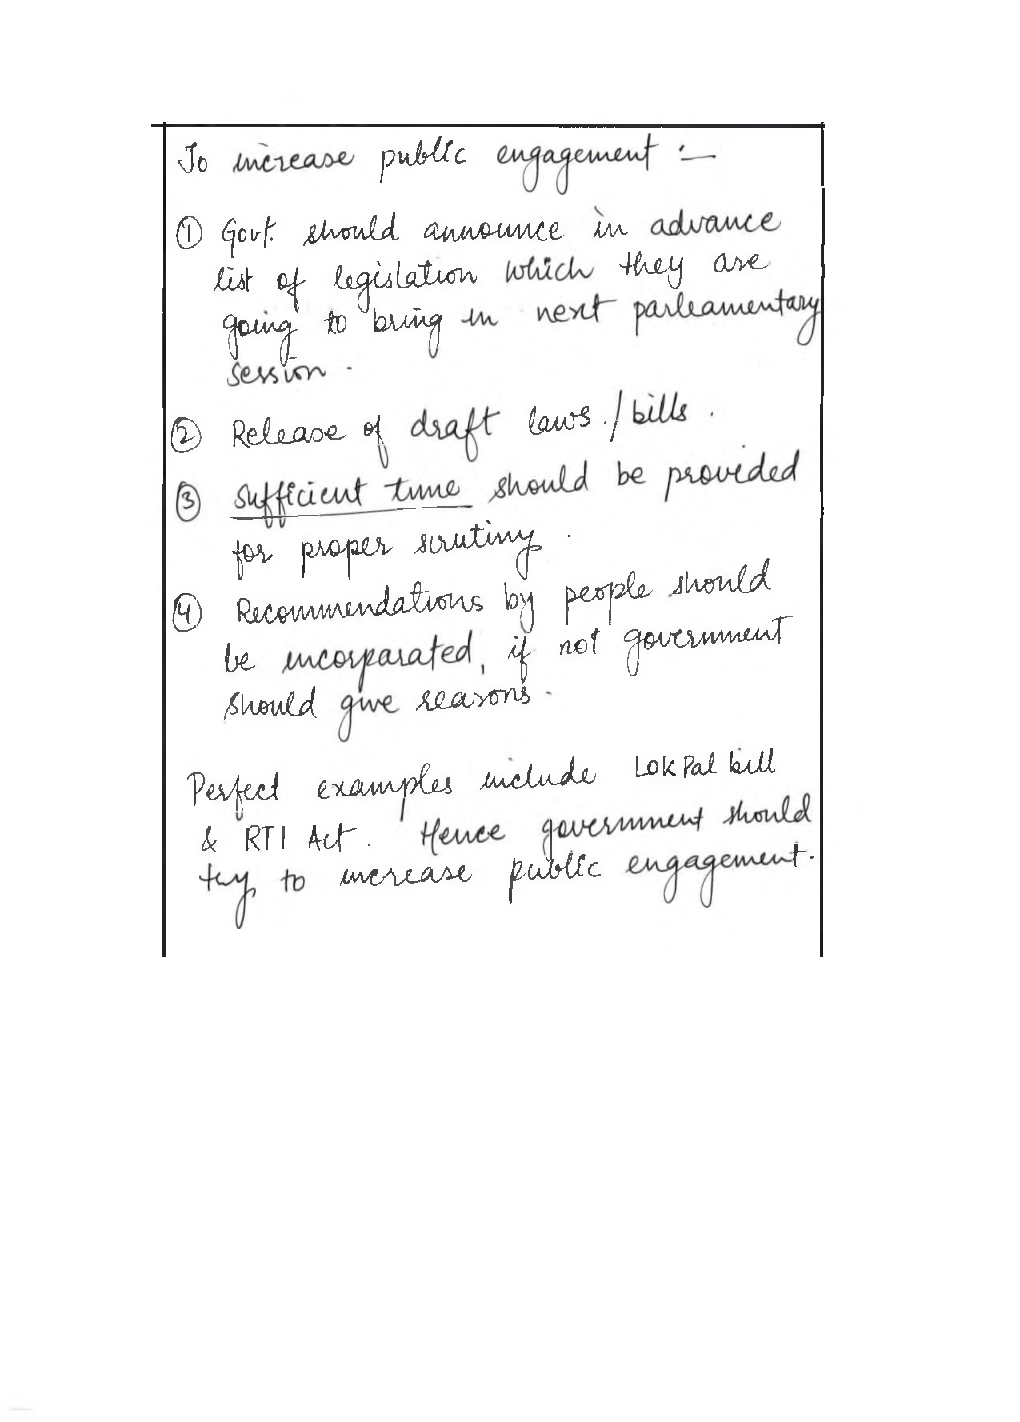 To increase public engagement :-
① Govt. should announce in advance
list of legislation which they are
going to bring in next parliamentary
session.
② Release of draft laws./bills.
③ Sufficient time should be provided
for proper scrutiny.
④ Recommendations by people should
be incorporated, if not government
should give reasons.
Perfect examples include Lok Pal bill
& RTI Act. Hence government should
try to increase public engagement.